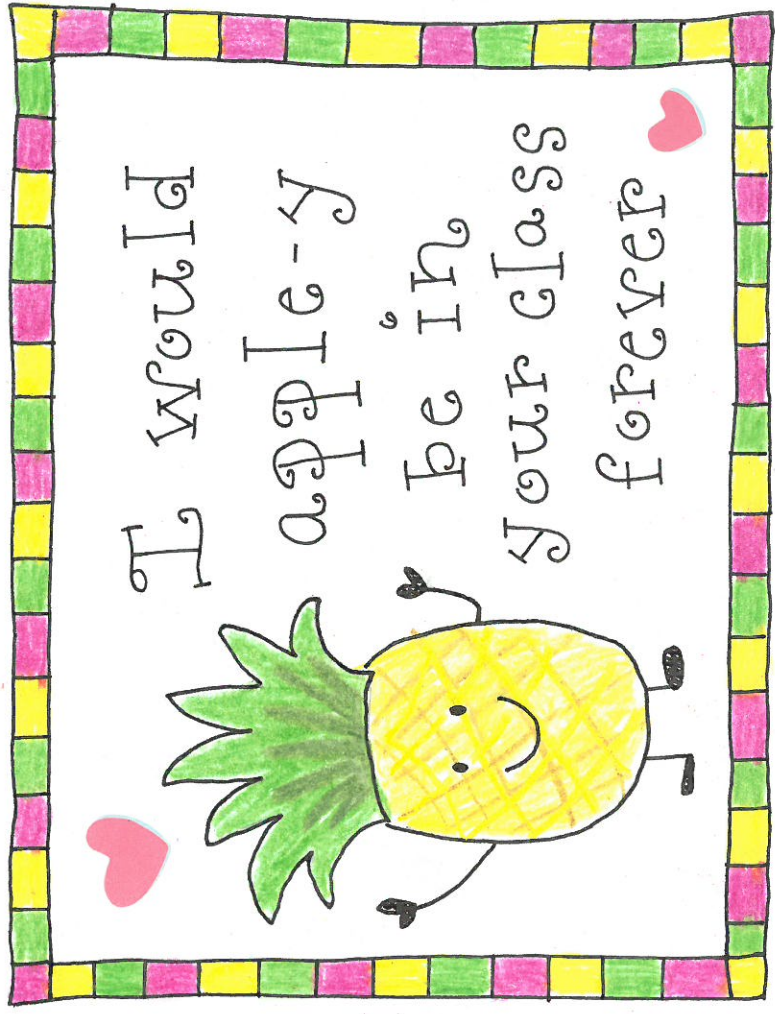 I would
apple-y
be in
your class
forever